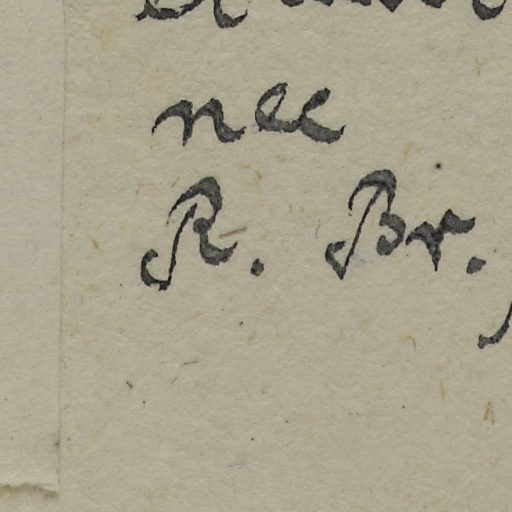 nec
R. Br.